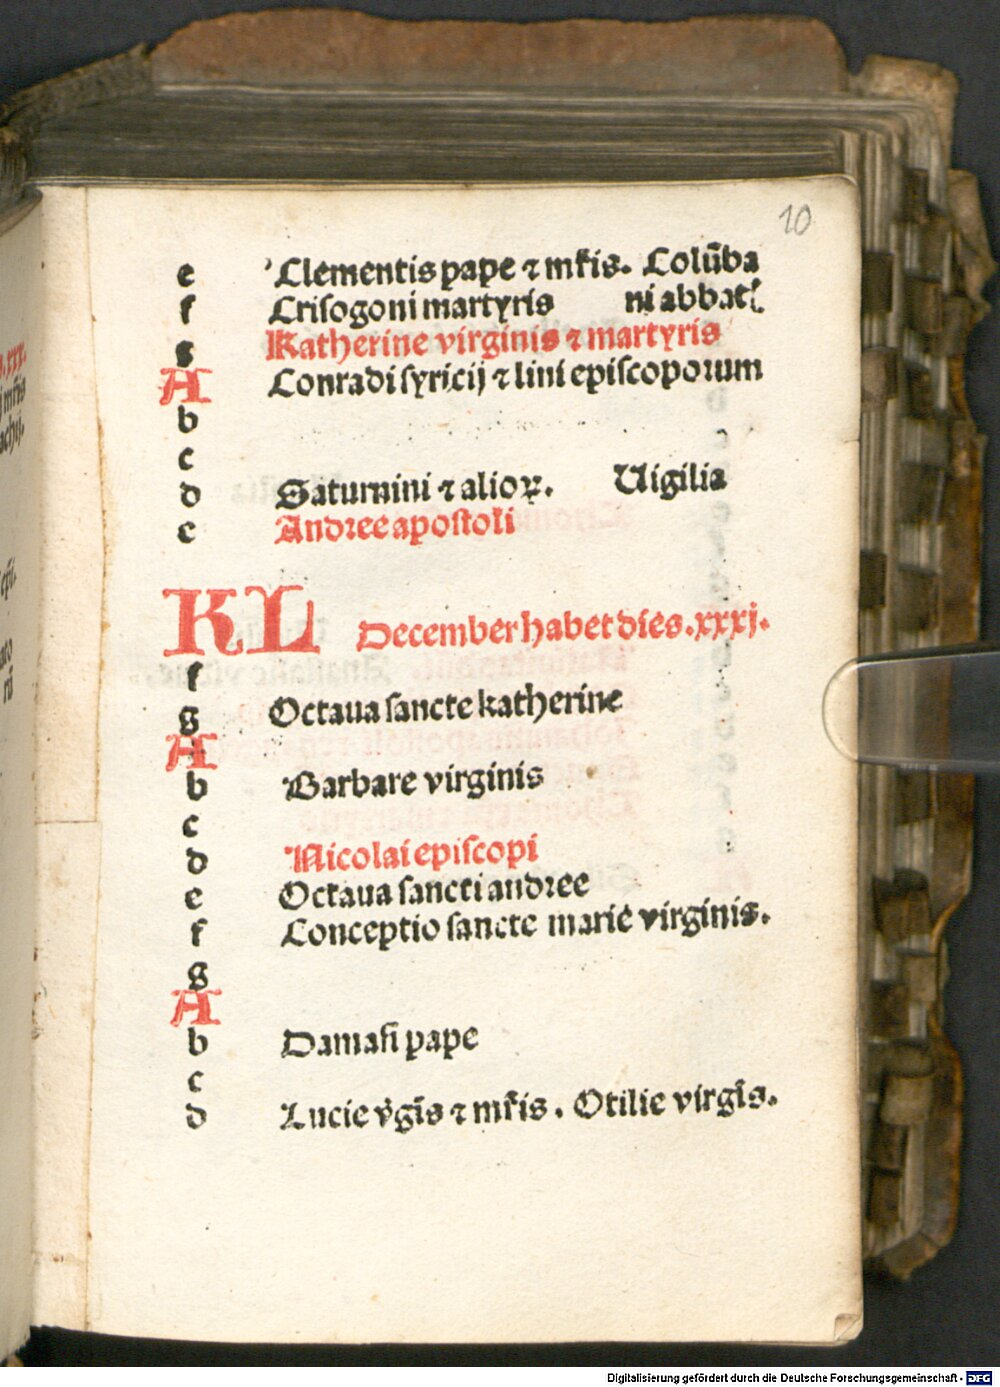 10
e Clementis pape ⁊ mr̃is. Colũba
f Crisogoni martyris ni abbat
g Katherine virginis ⁊ martyris
A Conradi syricij ⁊ lini episcoporum
b
c
d Saturnini ⁊ alioꝝ. Uigilia
e Andree apostoli
KL December habet dies .xxxj.
f
g Octaua sancte katherine
A
b Barbare virginis
c
d Nicolai episcopi
e Octaua sancti andree
f Conceptio sancte marie virginis.
g
A
b Damasi pape
c
d Lucie ṽgĩs ⁊ mr̃is. Otilie virgĩs.
.xxx.
Digitalisierung gefördert durch die Deutsche Forschungsgemeinschaft - DFG